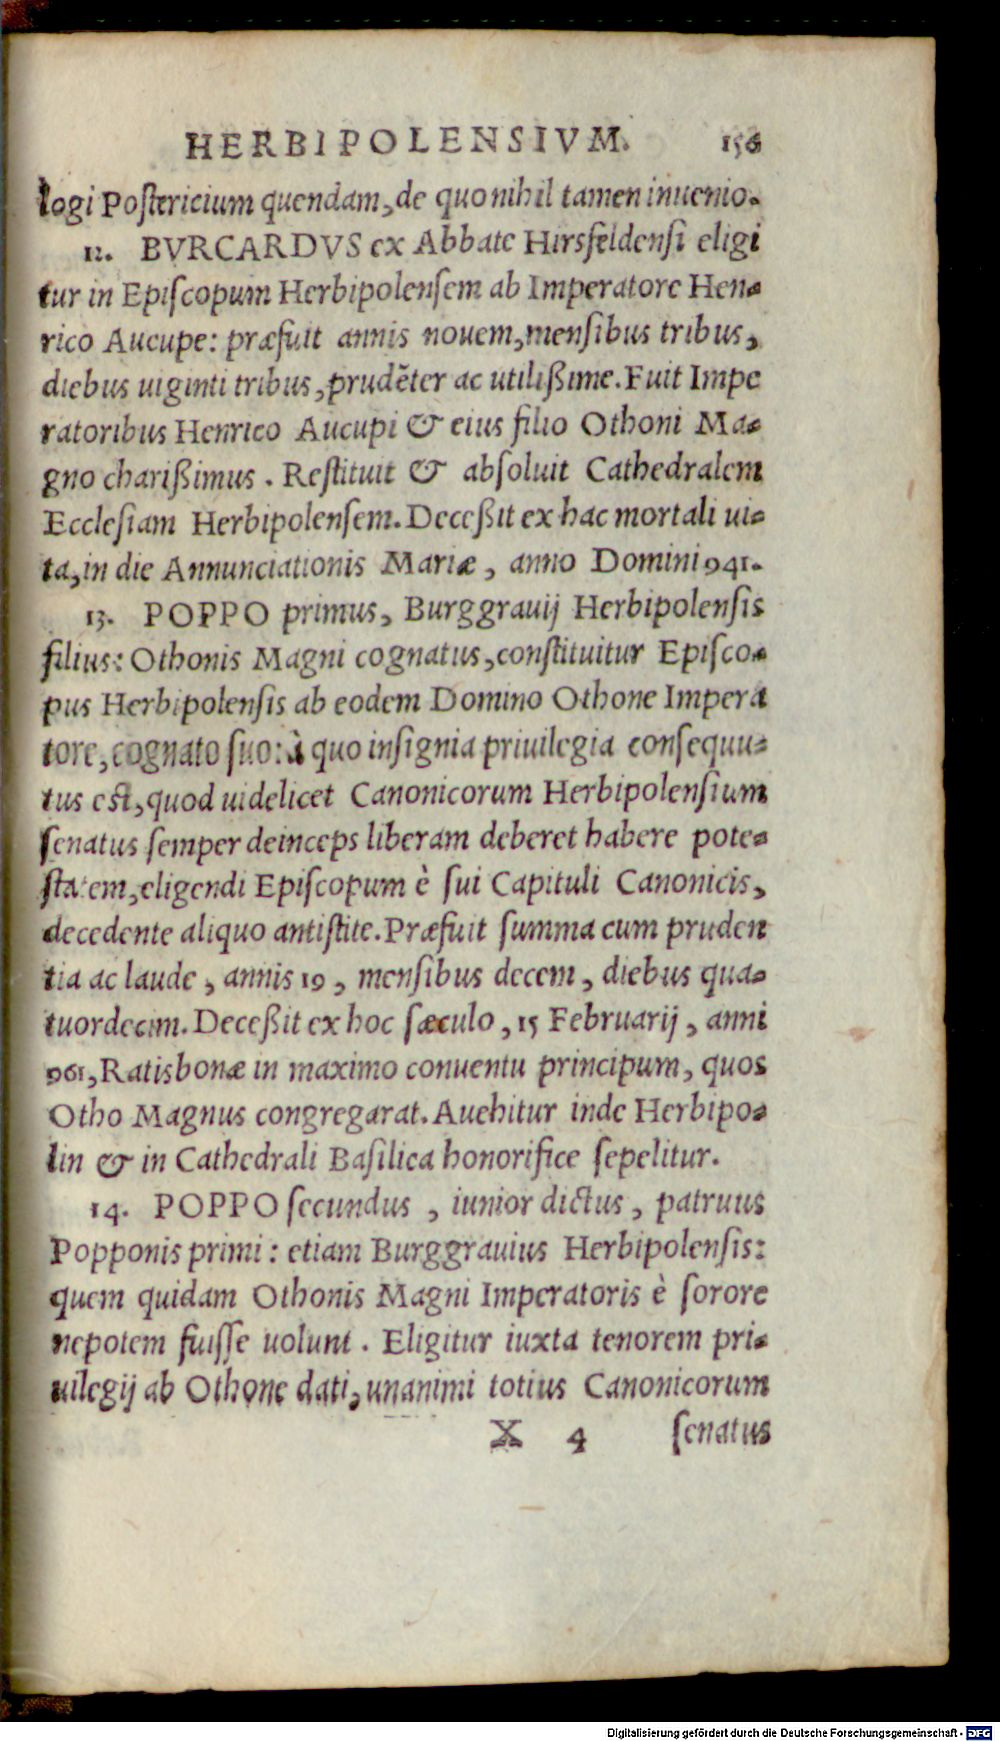 HERBIPOLENSIVM. 156
logi Poſtericium quendam, de quo nihil tamen inuenio.
12. BVRCARDVS ex Abbate Hirsfeldensi eligi
tur in Epiſcopum Herbipolenſem ab Imperatore Hen-
rico Aucupe: præfuit annis nouem, menſibus tribus,
diebus uiginti tribus, prudẽter ac utilißime. Fuit Impe
ratoribus Henrico Aucupi & eius filio Othoni Ma-
gno charißimus. Reſtituit & abſoluit Cathedralem
Eccleſiam Herbipolenſem. Deceßit ex hac mortali ui-
ta, in die Annunciationis Mariæ, anno Domini 941.
13. POPPO primus, Burggrauij Herbipolenſis
filius: Othonis Magni cognatus, conſtituitur Epiſco-
pus Herbipolenſis ab eodem Domino Othone Impera
tore, cognato ſuo: à quo inſignia priuilegia conſequu-
tus eſt, quod uidelicet Canonicorum Herbipolenſium
ſenatus ſemper deinceps liberam deberet habere pote-
ſtatem, eligendi Epiſcopum è ſui Capituli Canonicis,
decedente aliquo antiſtite. Præfuit ſumma cum pruden
tia ac laude, annis 19, menſibus decem, diebus qua-
tuordecim. Deceßit ex hoc ſæculo, 15 Februarij, anni
961, Ratisbonæ in maximo conuentu principum, quos
Otho Magnus congregarat. Auehitur inde Herbipo-
lin & in Cathedrali Baſilica honorifice ſepelitur.
14. POPPO ſecundus, iunior dictus, patruus
Popponis primi: etiam Burggrauius Herbipolenſis:
quem quidam Othonis Magni Imperatoris è ſorore
nepotem fuiſſe uolunt. Eligitur iuxta tenorem pri-
uilegij ab Othone dati, unanimi totius Canonicorum
X 4 ſenatus
Digitalisierung gefördert durch die Deutsche Forschungsgemeinschaft - DFG